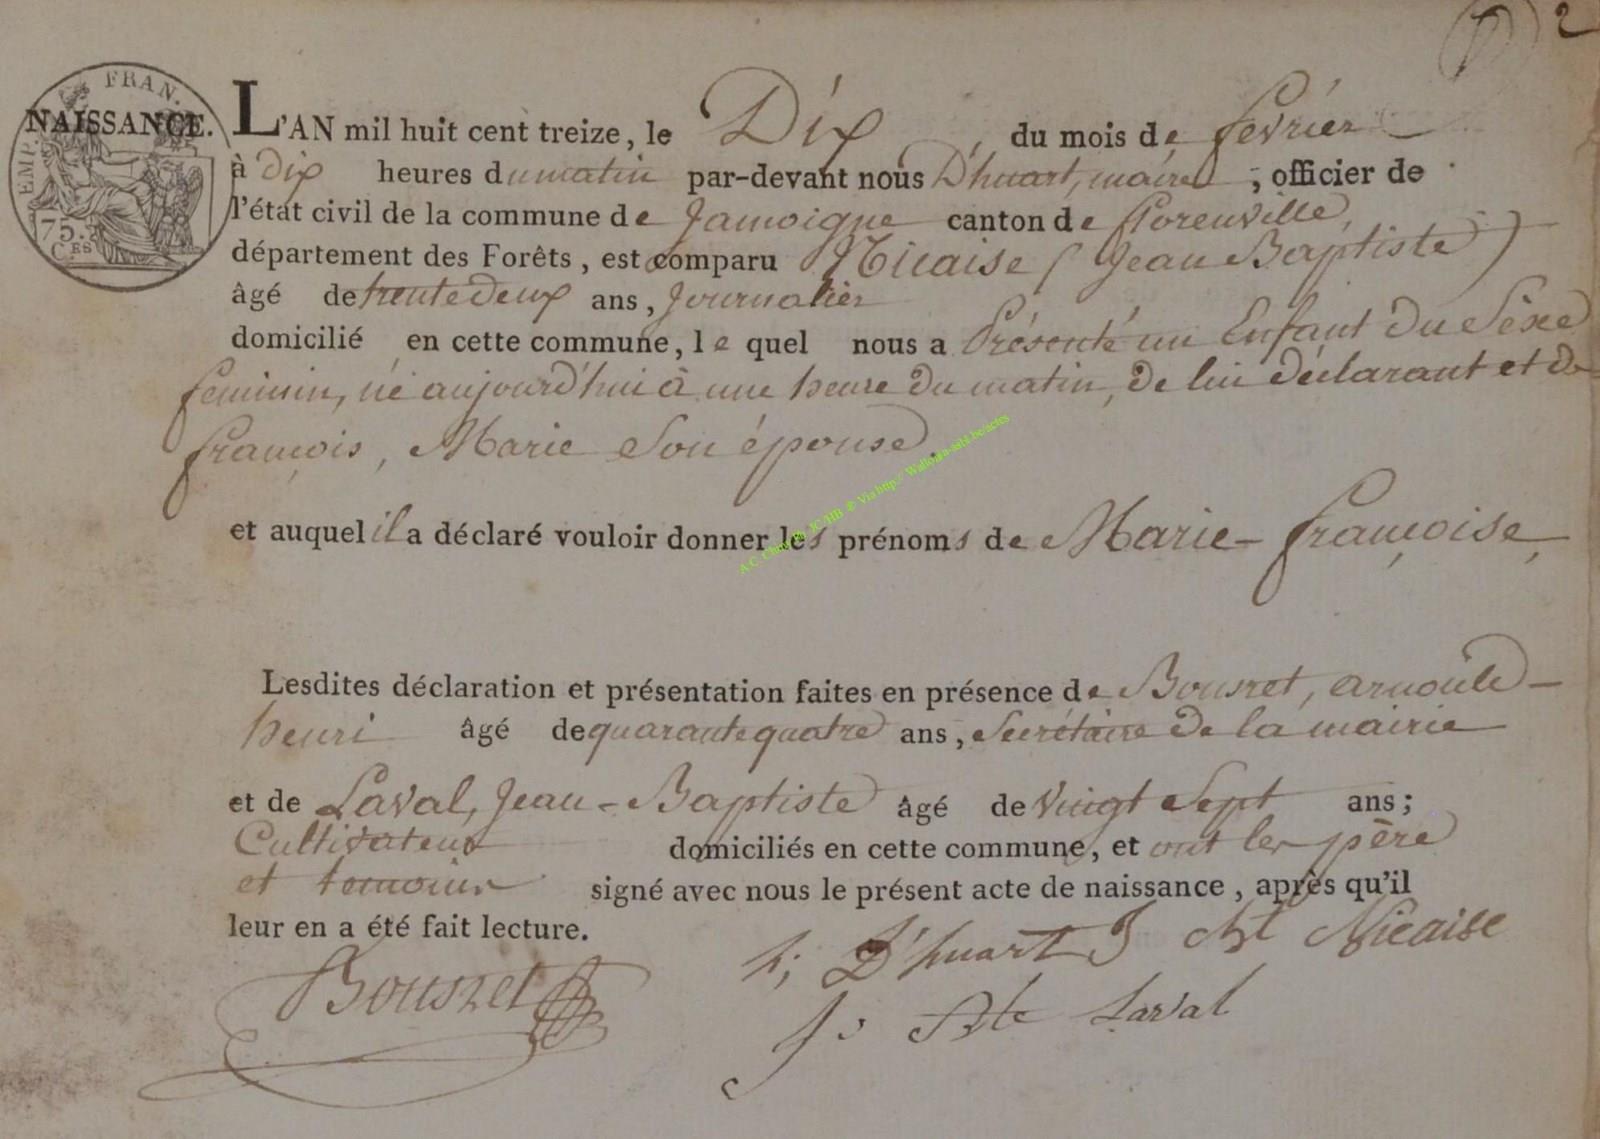 2
EMP. FRAN.
75. C.ES
NAISSANCE.
L'AN mil huit cent treize, le Dix du mois de fevrier
à dix heures du matin par-devant nous D'huart, maire, officier de
l'état civil de la commune de Jamoigne canton de florenville,
département des Forêts, est comparu Nicaise (Jean Baptiste)
âgé de trente deux ans, Journalier
domicilié en cette commune, le quel nous a Présenté un Enfant du Sèxe
feminin, né aujourd'hui à une heure du matin, de lui déclarant et de
françois, Marie Son épouse.
et auquel il a déclaré vouloir donner les prénoms de Marie-françoise,
A.C. JC/HB ® Via http:// Wallonia-asbl.be/actes
Lesdites déclaration et présentation faites en présence de Bousret, arnould-
henri âgé de quarante quatre ans, Secrétaire de la mairie
et de Laval, Jean-Baptiste âgé de vingt Sept ans;
Cultivateur domiciliés en cette commune, et ont les père
et temoins signé avec nous le présent acte de naissance, après qu'il
leur en a été fait lecture.
h; D'huart J Bt Nicaise
Bousret
J: Bte Laval